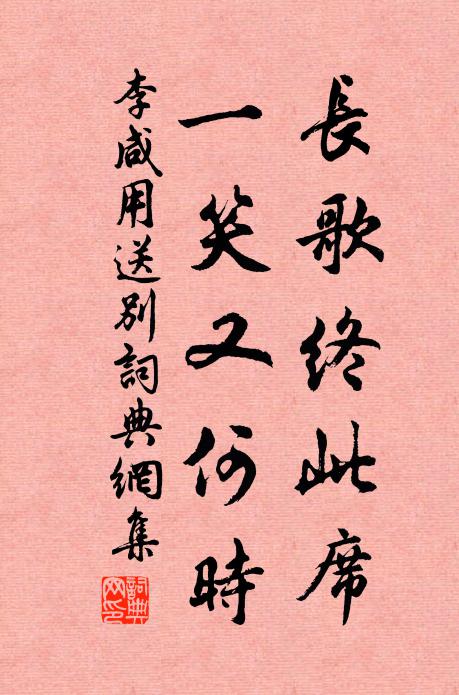 長歌終此席
一笑又何時
李咸用送别詞典網集
詞典網印